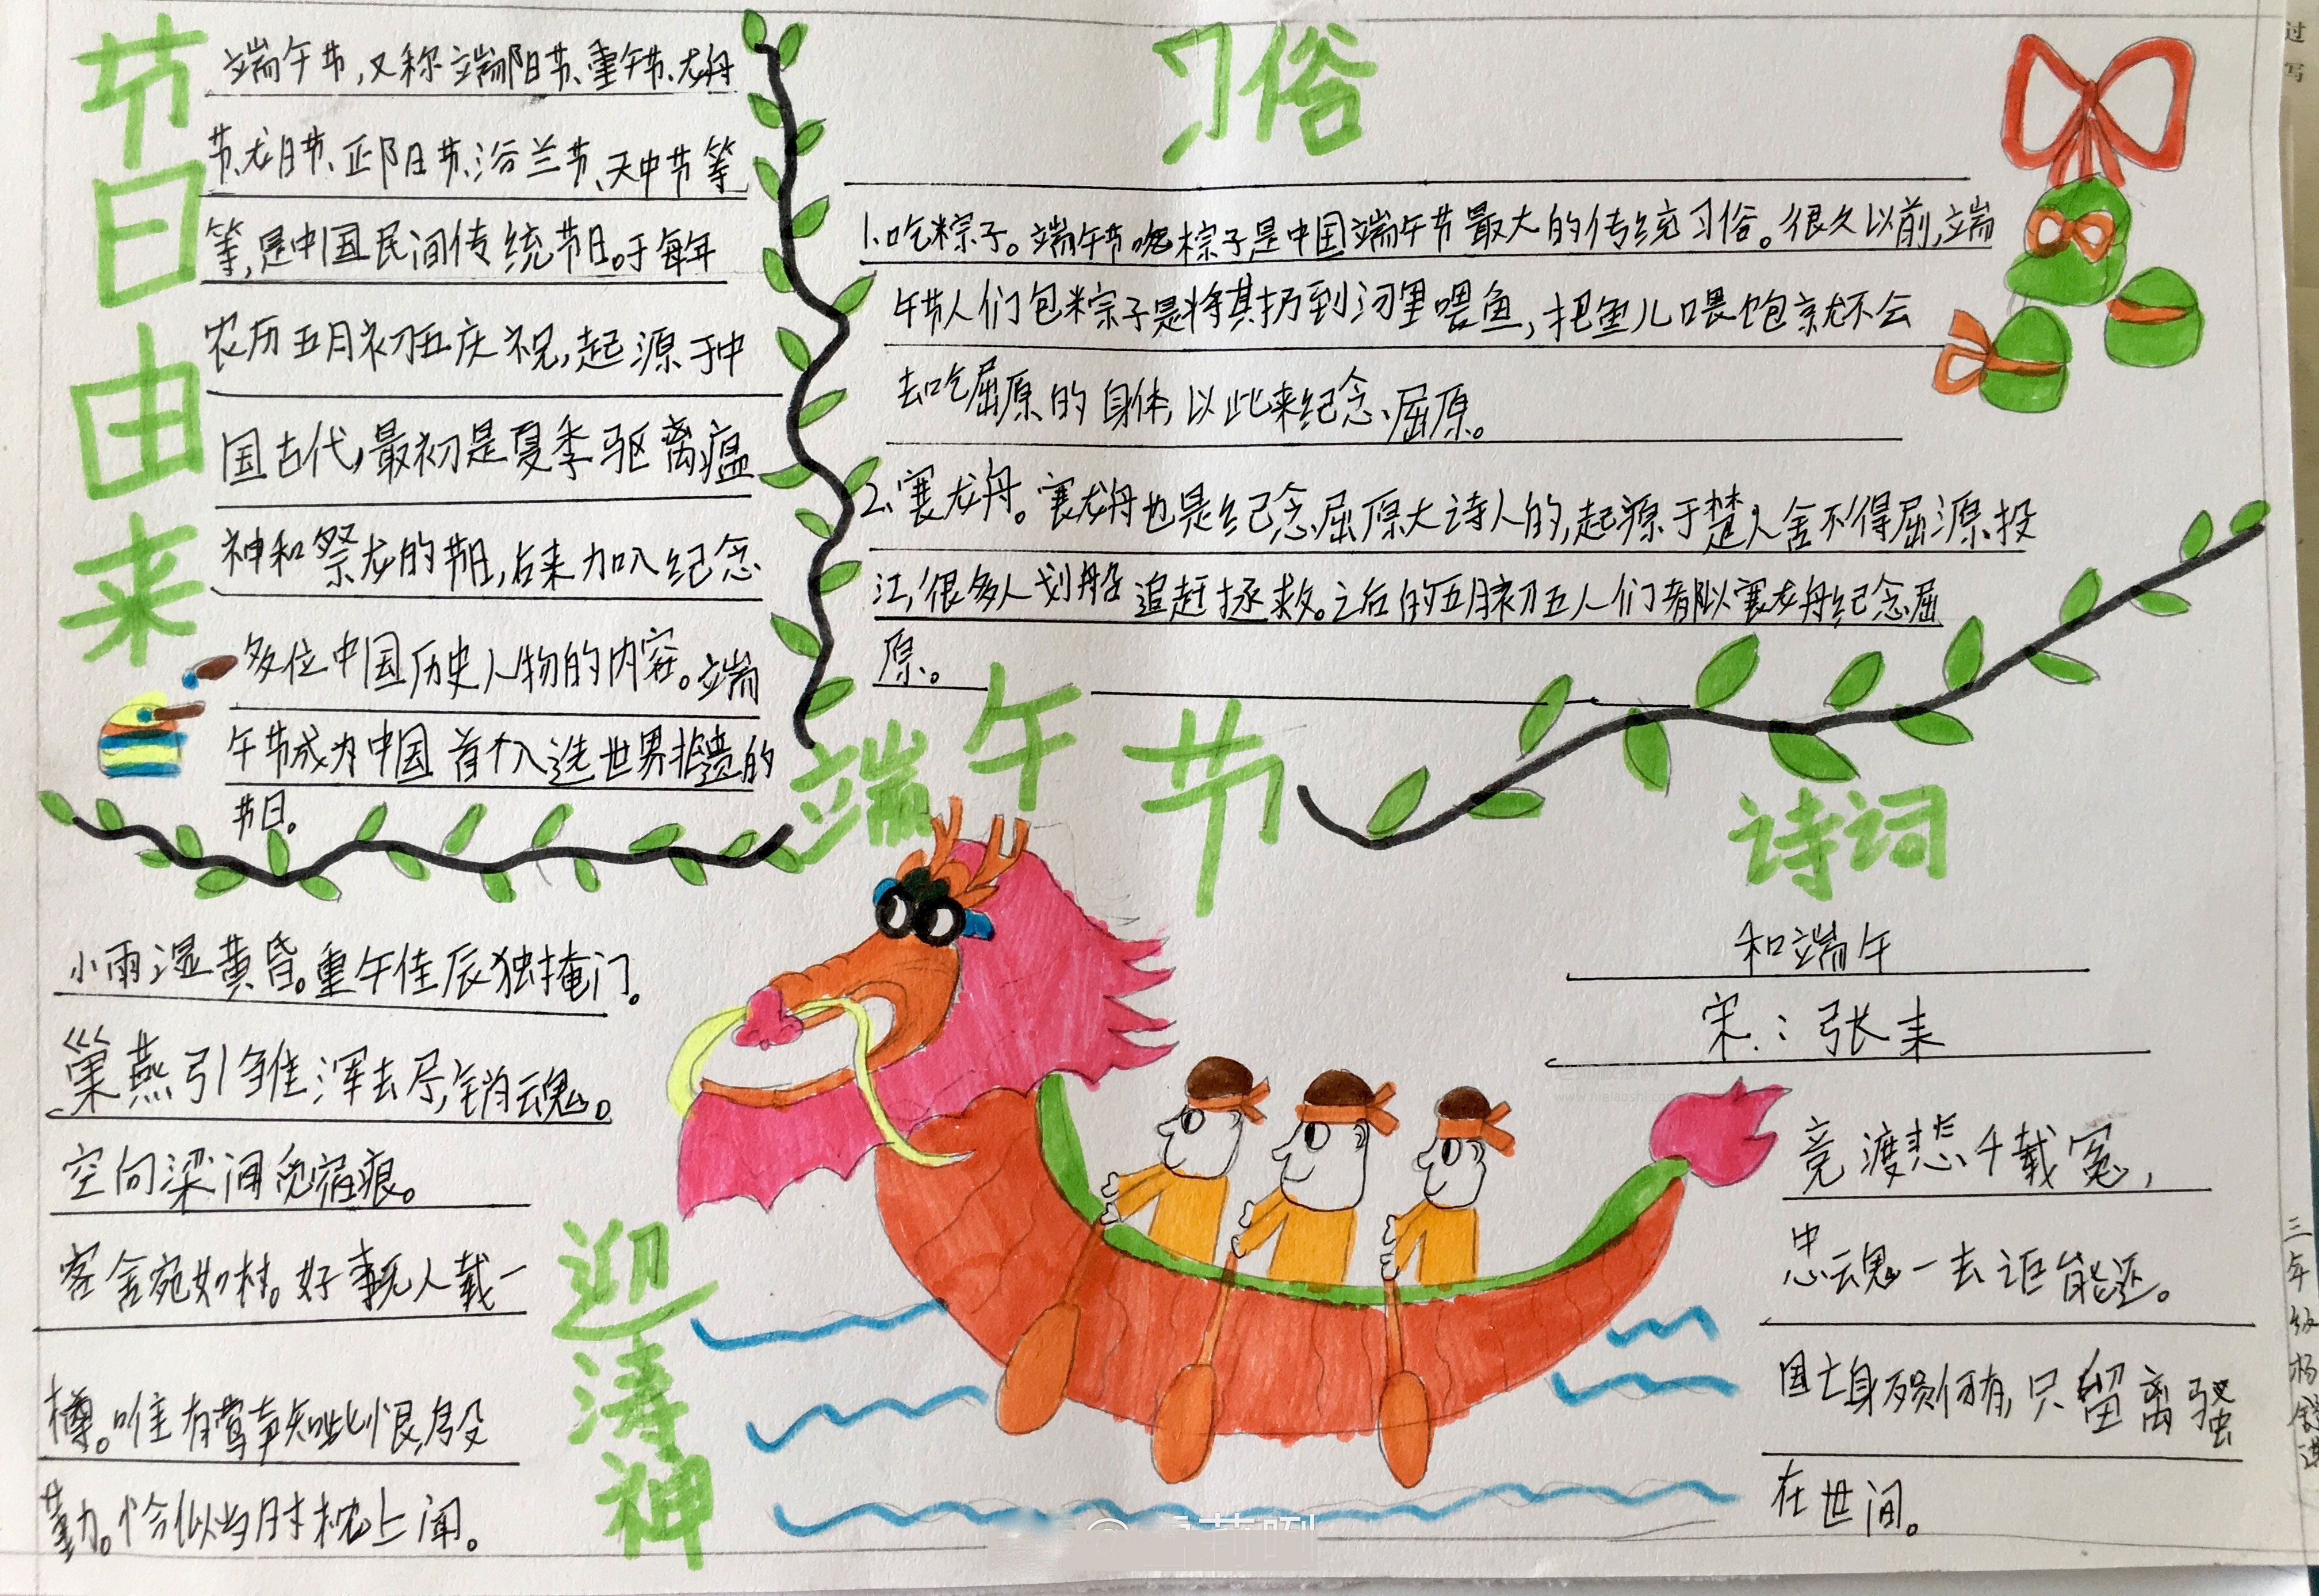 节日由来
端午节,又称端阳节、重午节、龙舟
节、龙日节、正阳节、浴兰节、天中节等
等,是中国民间传统节日。于每年
农历五月初五庆祝,起源于中
国古代,最初是夏季驱离瘟
神和祭龙的节日,后来加入纪念
多位中国历史人物的内容。端
午节成为中国首个入选世界非遗的
节日。
习俗
1、吃粽子。端午节吃粽子是中国端午节最大的传统习俗。很久以前,端
午节人们包粽子是将其扔到河里喂鱼,把鱼儿喂饱就不会
去吃屈原的身体,以此来纪念屈原。
2、赛龙舟。赛龙舟也是纪念屈原大诗人的,起源于楚人舍不得屈源投
江,很多人划船追赶拯救。之后的五月初五人们都以赛龙舟纪念屈
原。
端午节
小雨湿黄昏。重午佳辰独掩门。
巢燕引雏浑去尽,销魂。
空向梁间觅宿痕。
客舍宛如村。好事无人载一
樽。唯有莺声知此恨,殷
勤。恰似当时枕上闻。
迎涛神
诗词
和端午
宋:张耒
竞渡悲千载冤,
忠魂一去讵能还。
国亡身殒何有,只留离骚
在世间。
三年级